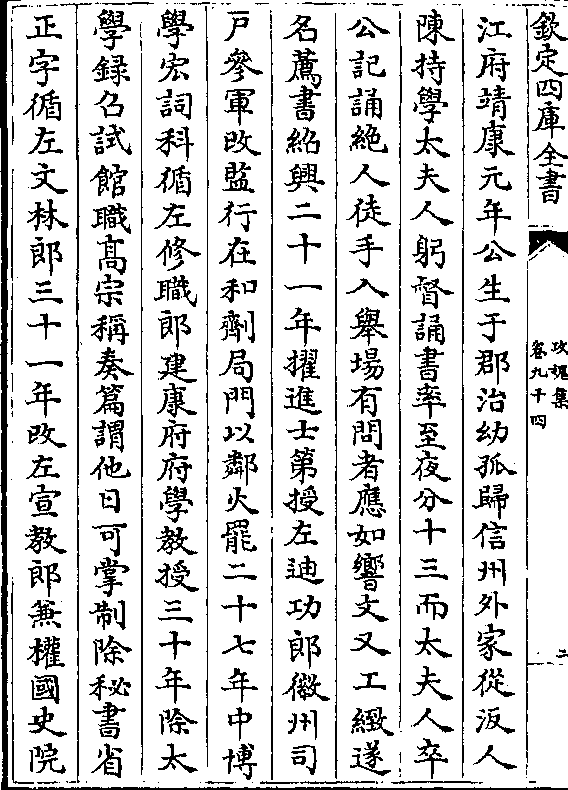 欽定四庫全書
攻媿集
卷九十四
二
江府靖康元年公生于郡治幼孤歸信州外家從汳人
陳持學太夫人躬督誦書率至夜分十三而太夫人卒
公記誦絶人徒手入舉場有問者應如響文又工緻遂
名薦書紹興二十一年擢進士第授左迪功郎徽州司
戸參軍改監行在和劑局門以鄰火罷二十七年中博
學宏詞科循左修職郎建康府府學教授三十年除太
學録召試館職髙宗稱奏篇謂他日可掌制除秘書省
正字循左文林郎三十一年改左宣教郎兼權國史院